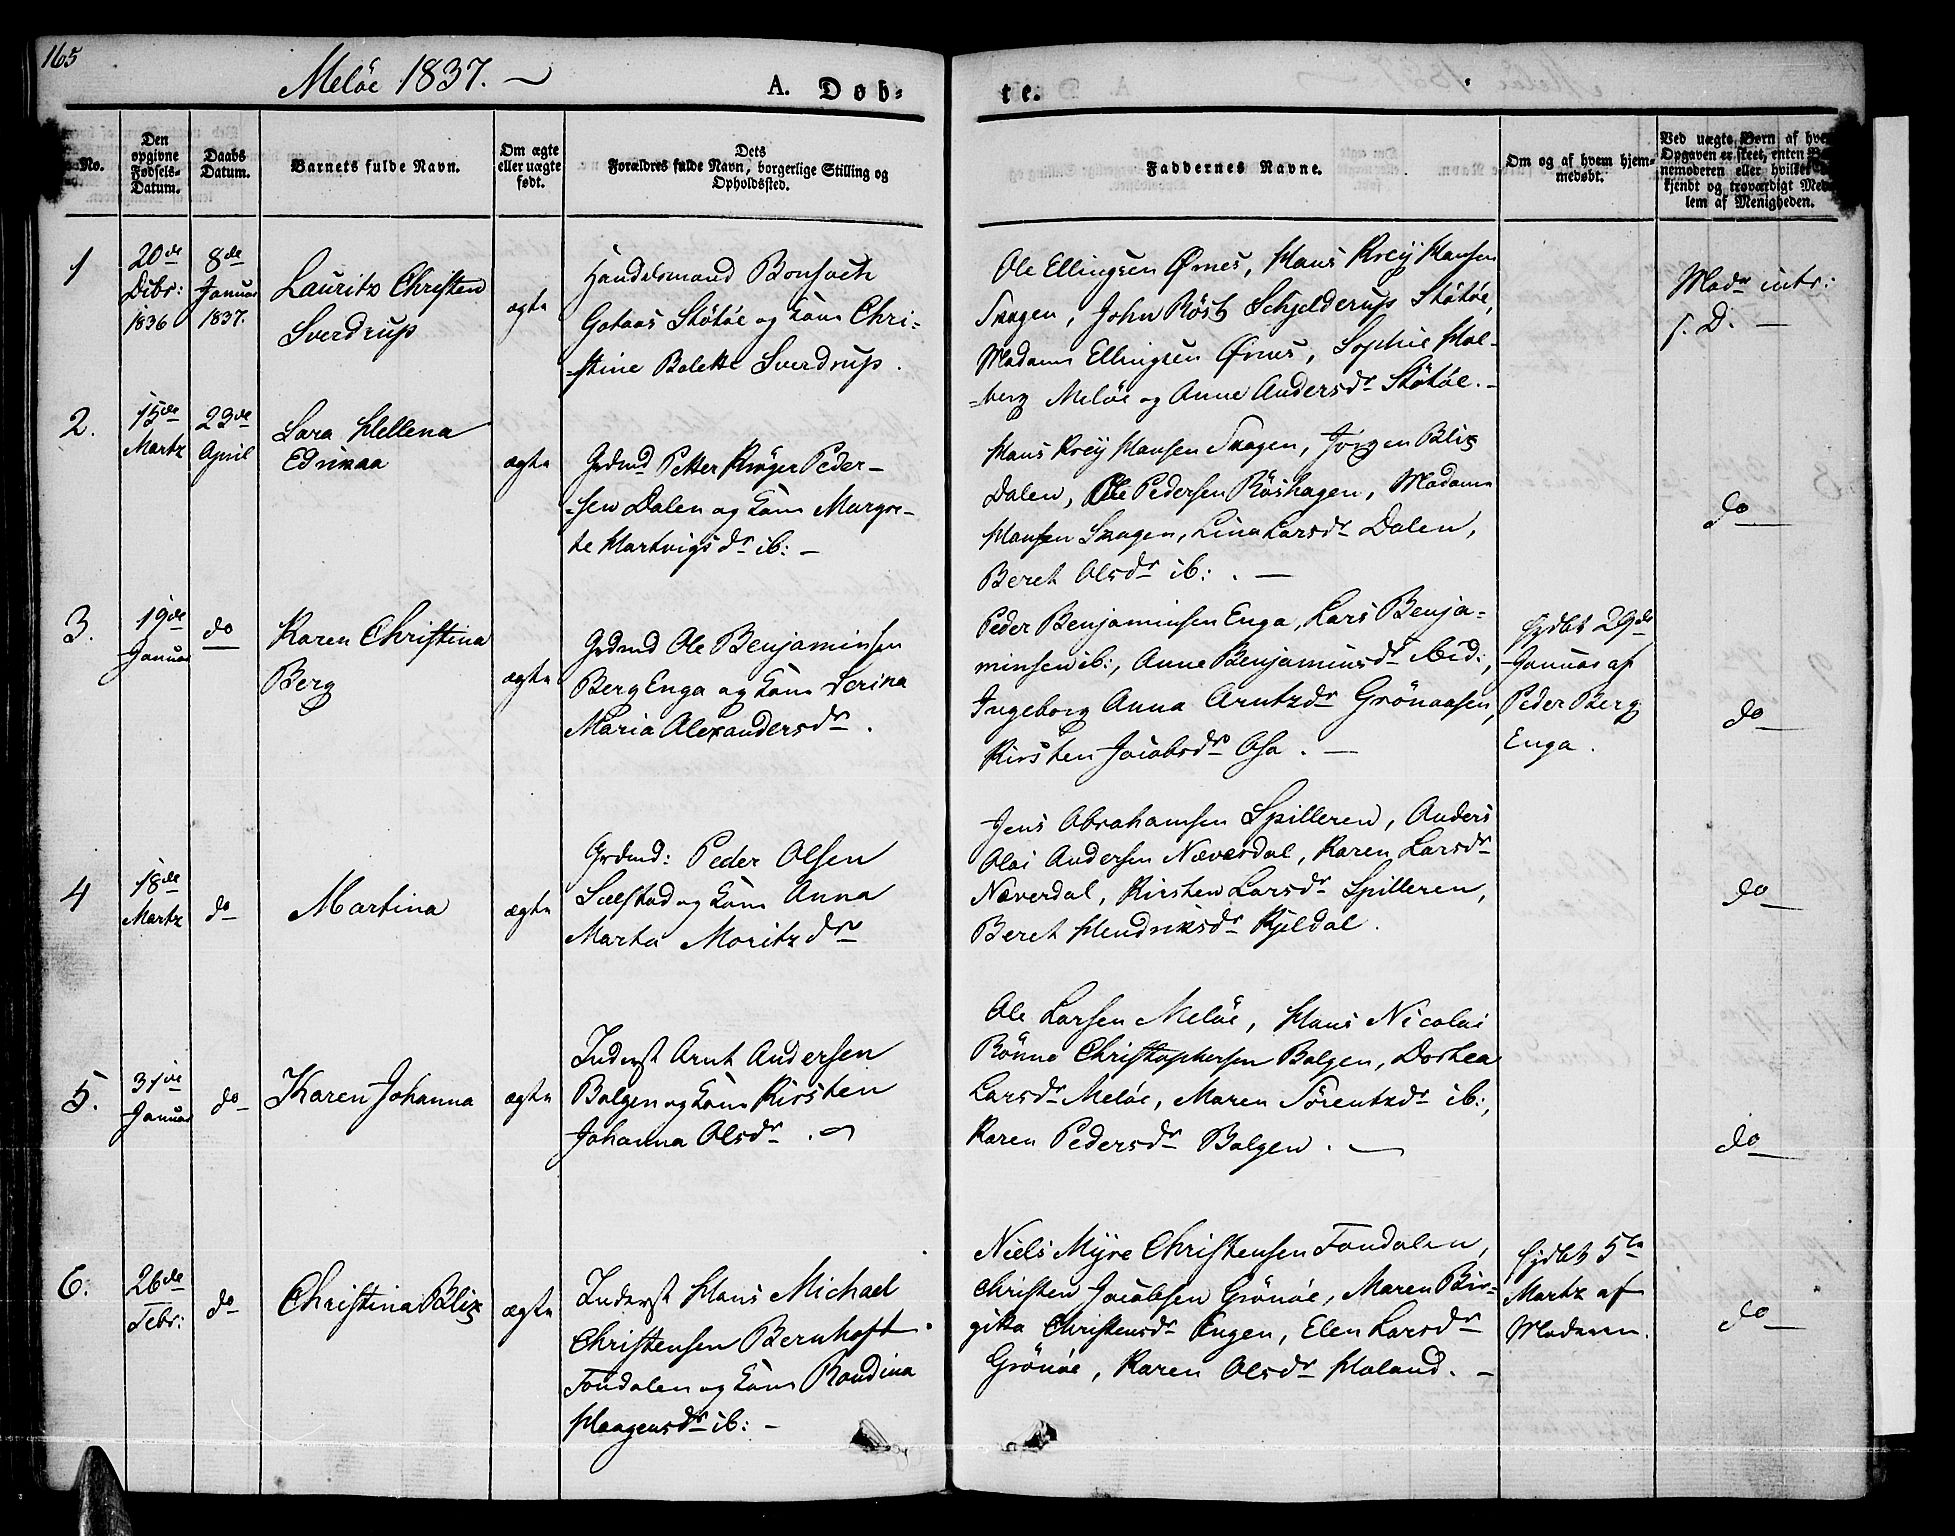 165
Meløe 1837. —
A. Døb-
te.
No.
Den opgivne Fødsels-Datum.
Daabs Datum.
Barnets fulde Navn.
Om ægte eller uægte født.
Dets Forældres fulde Navn, borgerlige Stilling og Opholdssted.
Faddernes Navne.
Om og af hvem hjem-
medøbt.
Ved uægte Børn af hvem
Opgaven er skeet, enten
nemoderen eller hvilket
kjendt og troværdigt Med-
lem af Menigheden.
1
20de
Dcbr:
1836
8de
Januar
1837.
Lauritz Christen
Sverdrup
ægte
Handelsmand Bonsach
Gotaas Støtøe og Kone Chri-
-stine Bolette Sverdrup.
Ole Ellingsen Ørnes, Hans Krey Hansen
Skagen, John Röst Schjelderup Støtøe,
Madam Ellingsen Ørnes, Sophie Hol-
-berg Meløe og Anne Andersdr Støtøe. -
Modr intr:
s. D. —
2.
15de
Martz
23de
April
Sara Hellena
Edrikaa
ægte
Grdmd Petter Krøger Peder-
-sen Dalen og Kone Margre-
te Hartvigsdr ib: —
Hans Krey Hansen Skagen, Jörgen Blix
Dalen, Ole Pedersen Röshagen, Madam
Hansen Skagen, Lina Larsdr Dalen,
Beret Olsdr ib: . —
do
3.
19de
Januar
do
Karen Christina
Berg
ægte
Grdmd Ole Benjaminsen
Berg Enga og Kone Serina
Maria Alexandersdr .
Peder Benjaminsen Enga, Lars Benja-
minsen ib:, Anne Benjaminsdr ibid:,
Ingeborg Anna Arntzdr Grönaasen,
Kirsten Jacobsdr Osa . —
Hjdbt 29de
Januar af
Peder Berg
Enga .
do
4
18de
Martz
do
Martina
ægte
Grdmd: Peder Olsen
Selstad og Kone Anna
Marta Moritzdr
Jens Abrahamsen Spilleren, Anders
Olai Andersen Næverdal, Karen Larsdr
Næverdal, Kirsten Larsdr Spilleren,
Beret Hendriksdr Kjeldal.
do
5.
31de
Januar
do
Karen Johanna
ægte
Inderst Arnt Andersen
Bolgen og Kone Kirsten
Johanna Olsdr .
Ole Larsen Meløe, Hans Nicolai
Rönne Christophersen Bolgen, Dorthea
Larsdr Meløe, Maren Sörentzdr ib:,
Karen Pedersdr Bolgen . —
do
6.
26de
Febr:
do
Christina Blix
ægte
Inderst Hans Michael
Christensen Bernhoft
Fondalen og Kone Rondina
Haagensdr ib: —
Niels Myre Christensen Fondalen,
Christen Jacobsen Grönøe, Maren Bir-
gitta Christensdr Engen, Elen Larsdr
Grönøe, Karen Olsdr Haland. —
Hjdbt 5te
Martz af
Moderen.
do